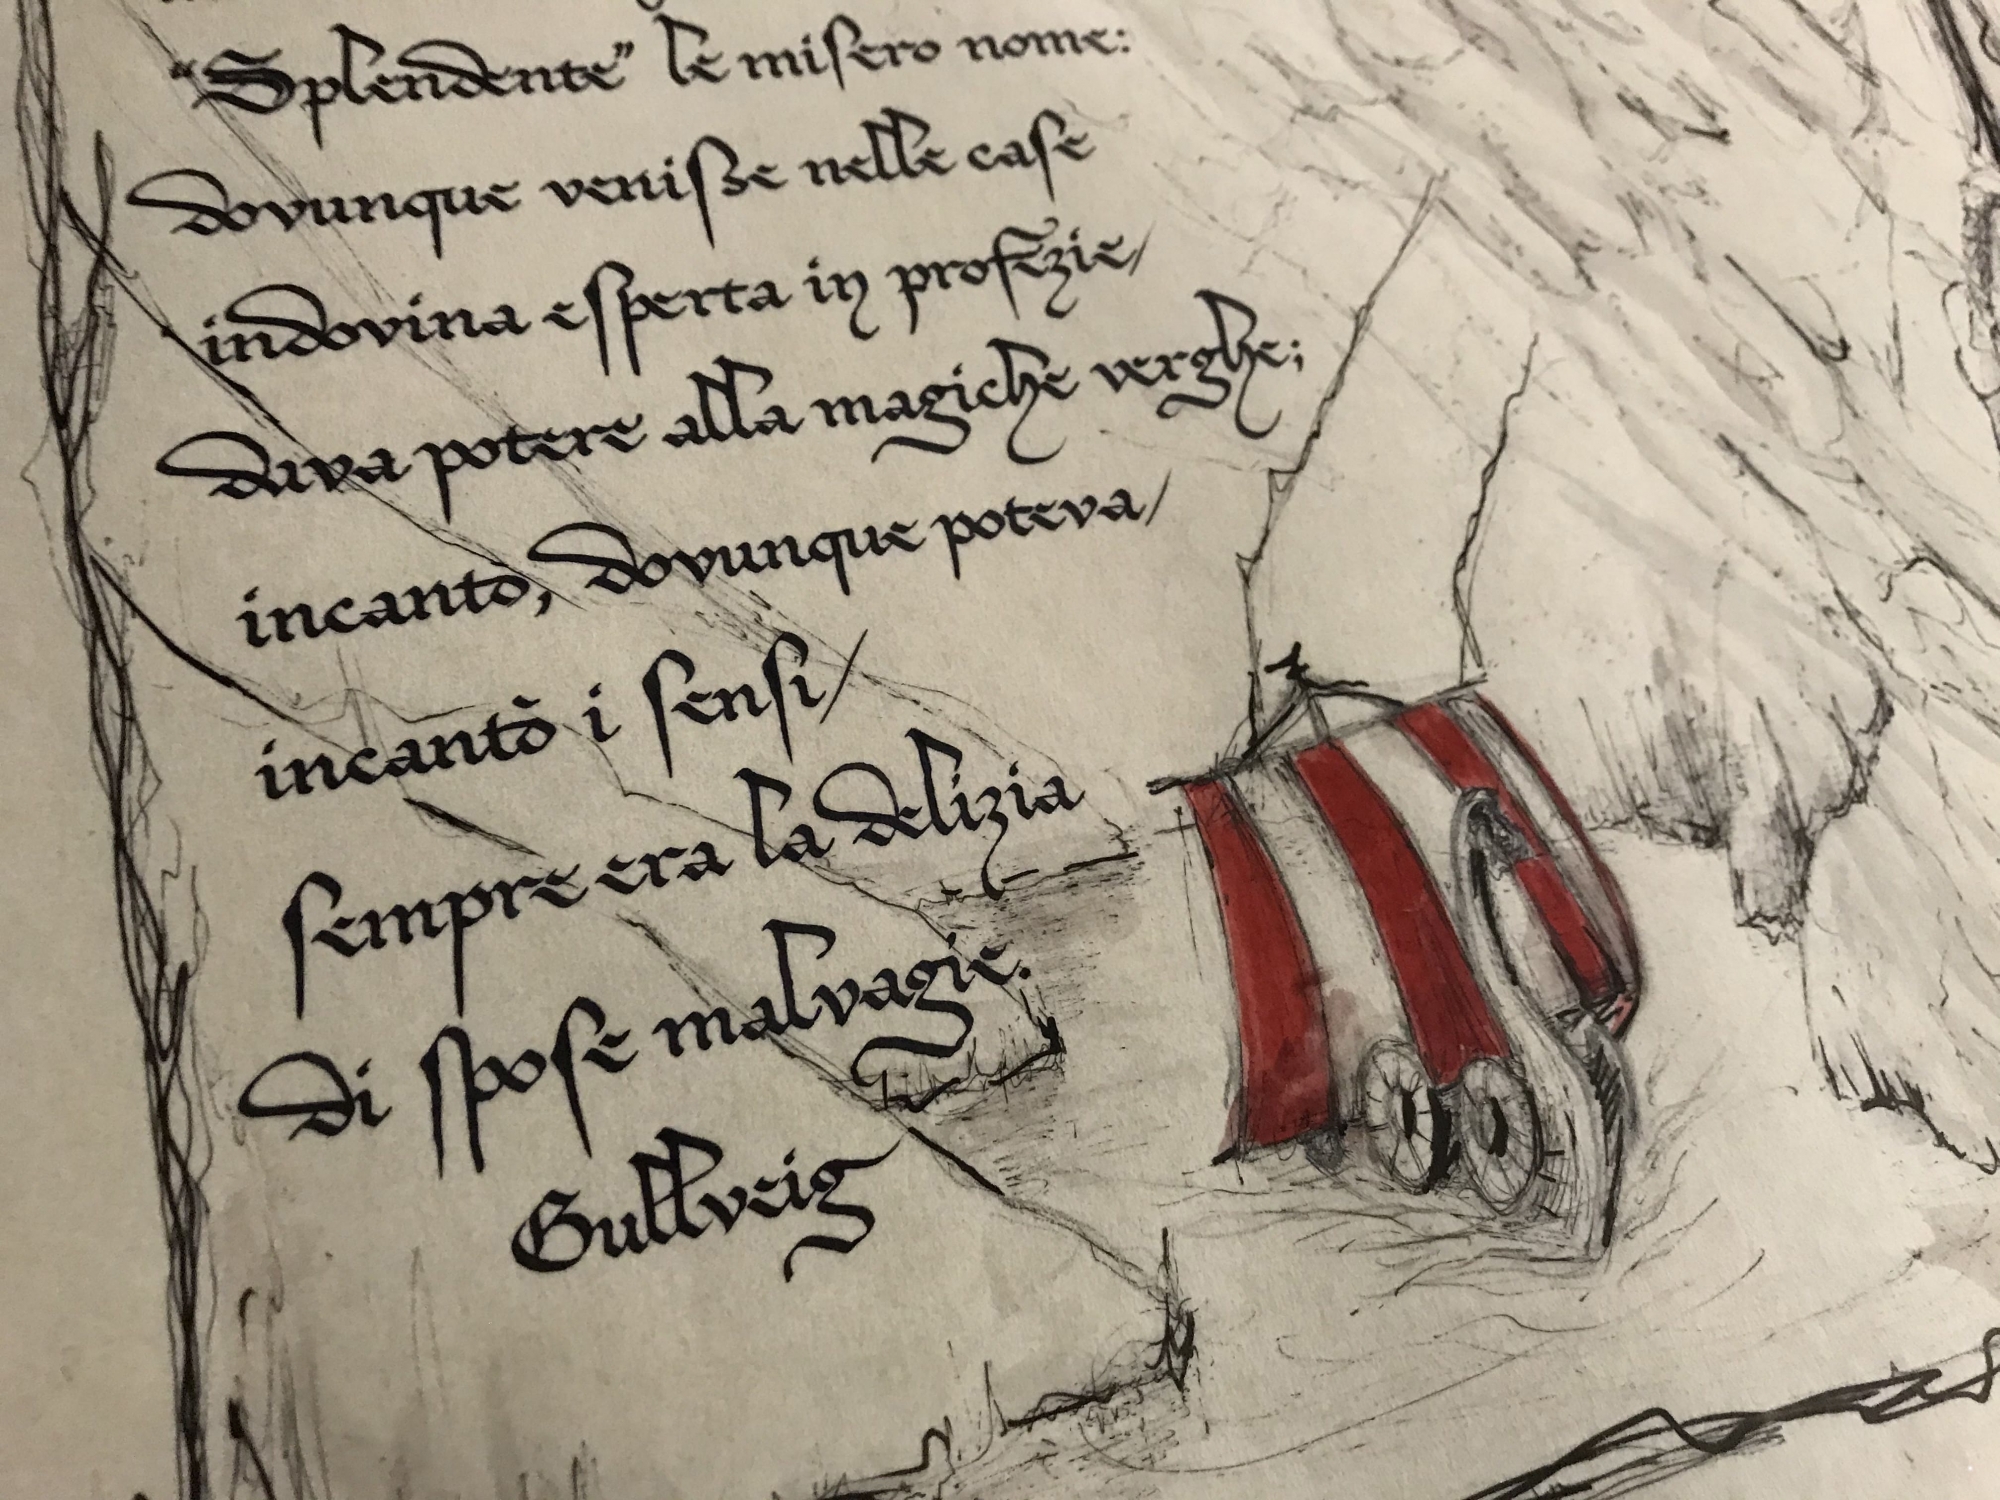 "Splendente" le misero nome:
dovunque venisse nelle case
indovina esperta in profezie/
dava potere alla magiche verghe;
incantò, dovunque poteva/
incantò i sensi/
sempre era la delizia
di spose malvagie.
Gullveig